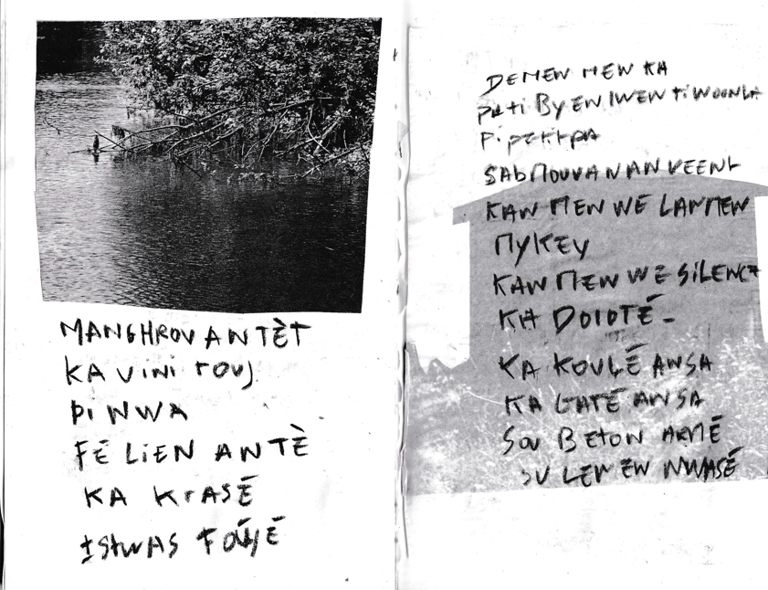 MANGHROV AN TÈT
KA VINI ROUJ
PI NWA
FÉ LIEN AN TÈ
KA KRASÉ
ISTWAS FOUYÉ
DEMEN MEN KA
PATI BYEN LWEN
SAB MOUVAN AN VEEN
KAW MEN WÉ LANMEN
MYKEY
KAW MEN WÉ SILENCE
KA DOIOTÉ -
KA KOULÉ AN SA
KA GATÉ AN SA
SOU BETON ARMÉ
SU LEW EN NWASÉ